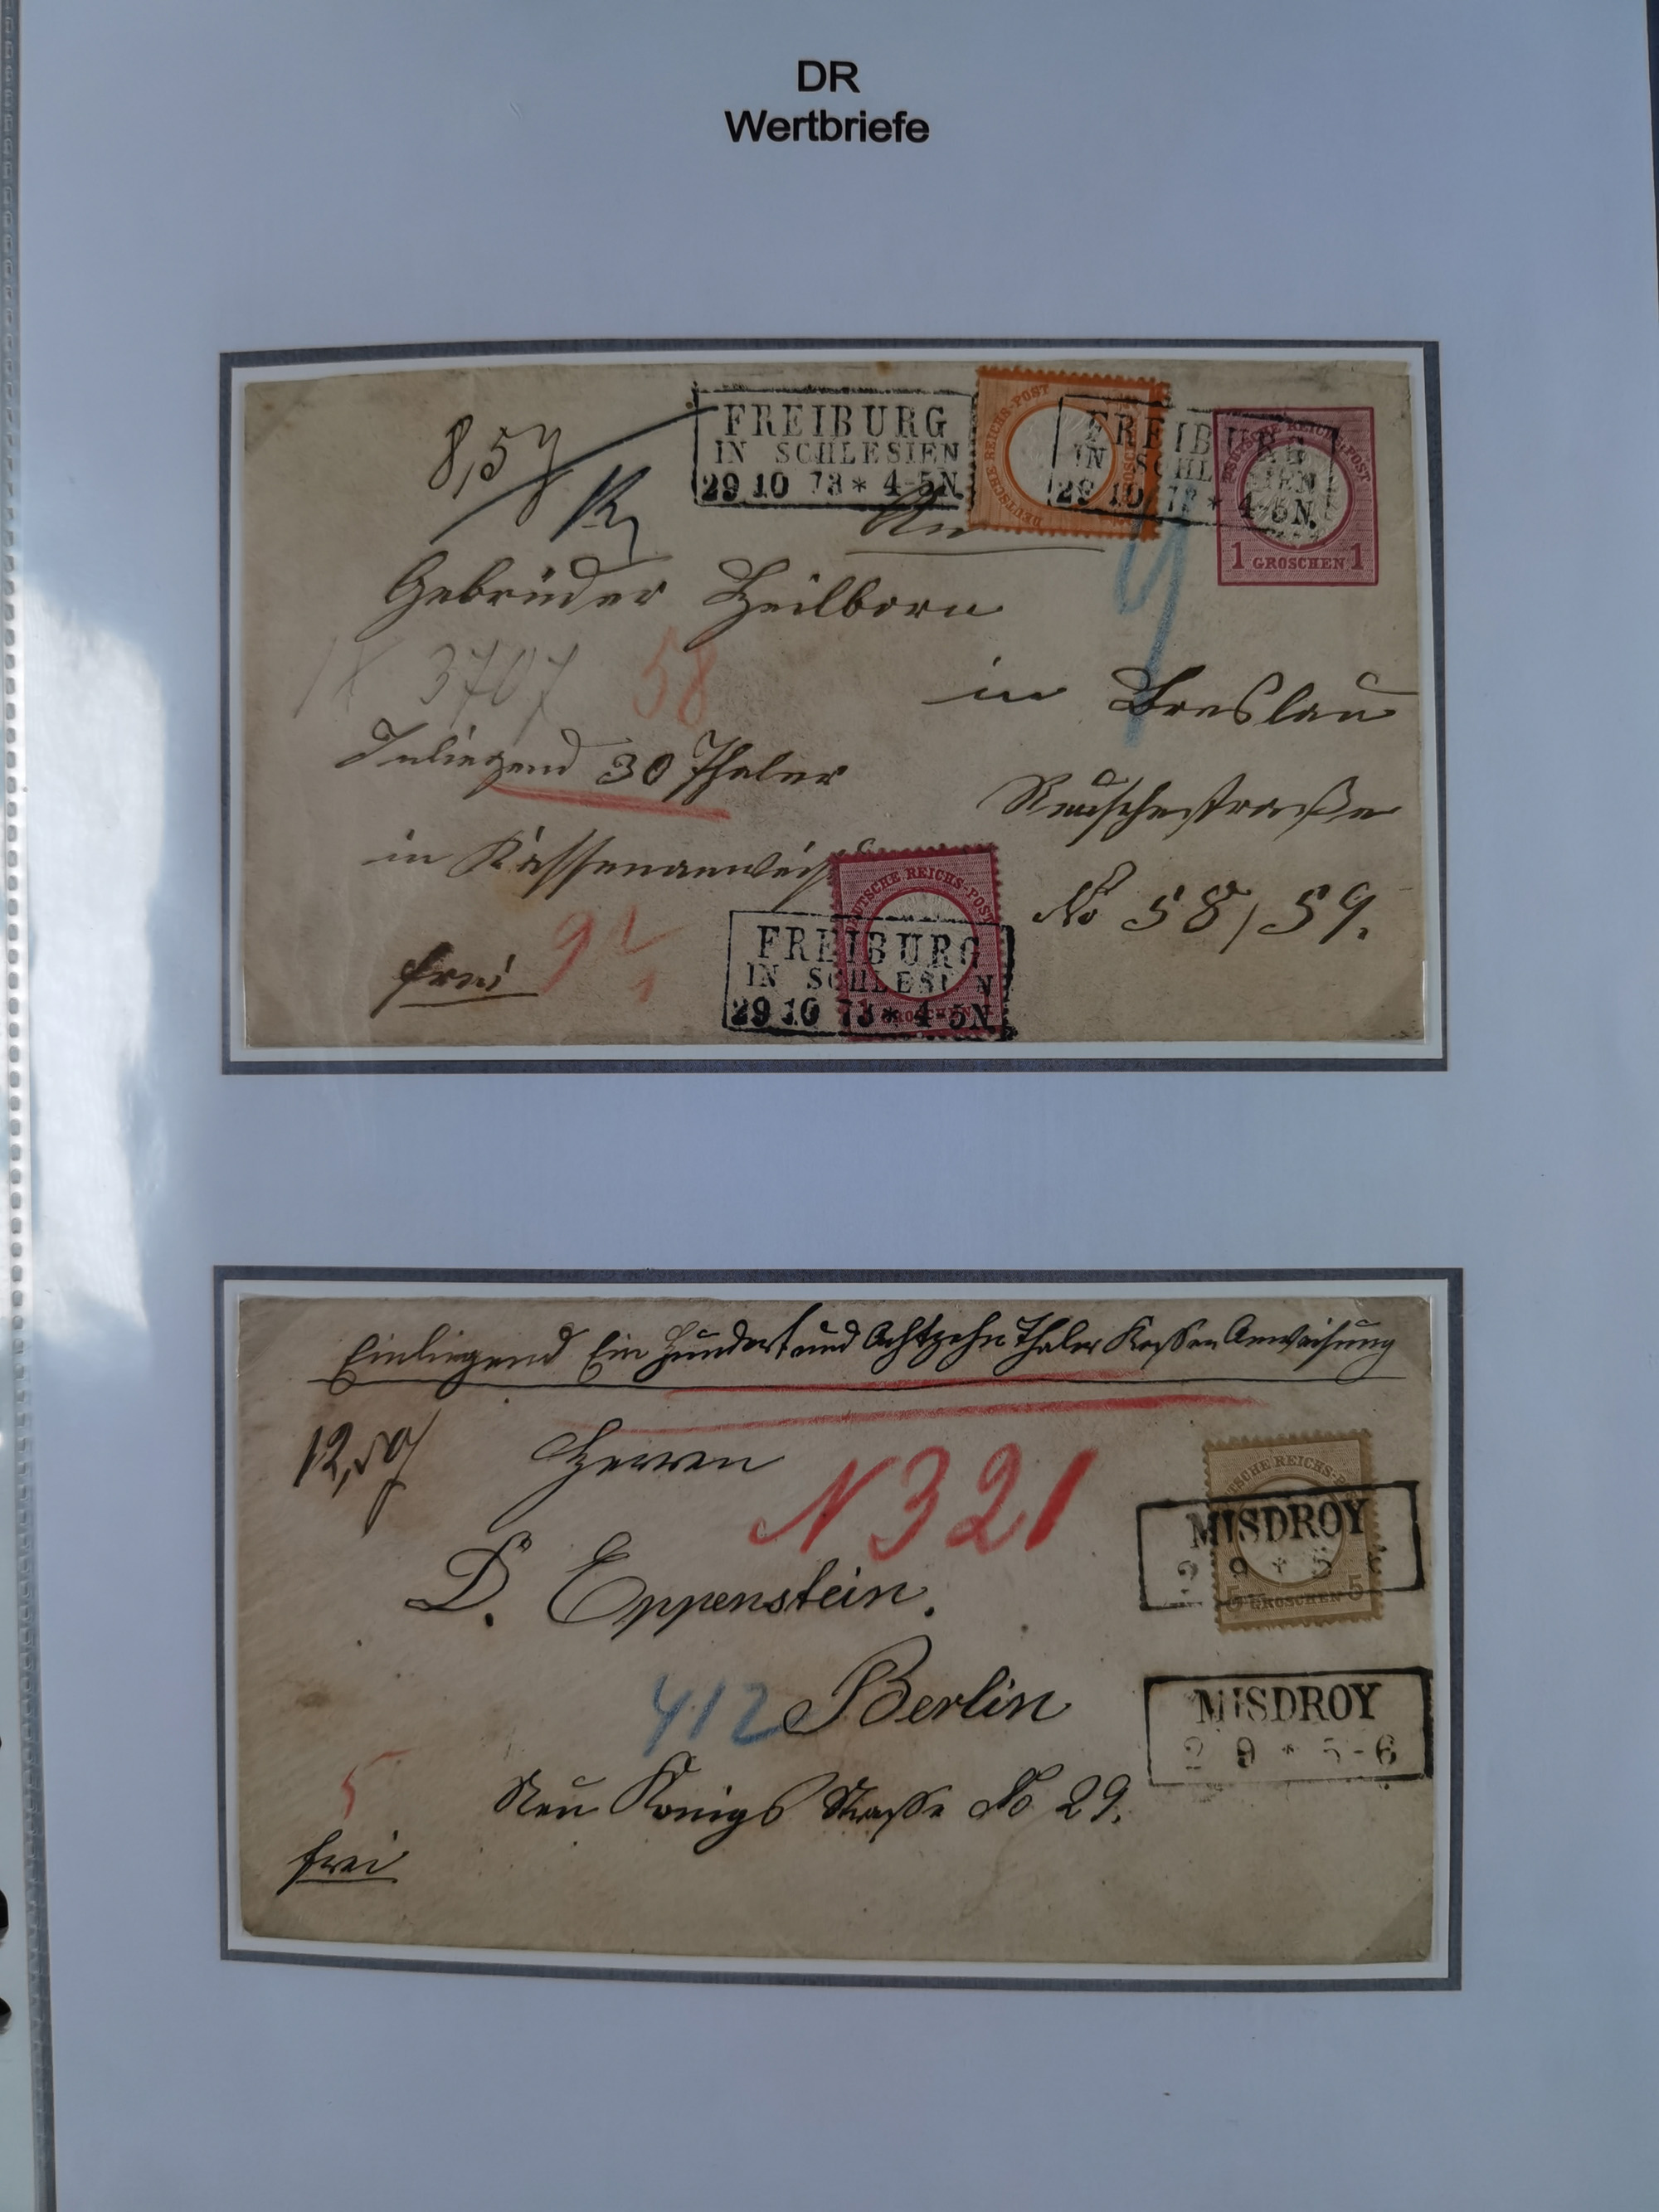 DR
Wertbriefe
FREIBURG
IN SCHLESIEN
29 10 73 * 4-5N
FREIBURG
IN SCHLESIEN
29 10 73 * 4-5N
DEUTSCHE REICHS-POST
DEUTSCHE REICHS-POST
1 GROSCHEN 1
8,5
An
Gebrüder Heilborn
3707 58
in Breslau
Inliegend 30 Thaler
Reuschestraße
in Kassenanweis
No 58/59.
frei
DEUTSCHE REICHS-POST
FREIBURG
IN SCHLESIEN
29 10 73 * 4-5N
Einliegend Ein Hundert und Achtzehn Thaler Kassen Anweisung
Herren
N 321
D. Eppenstein.
DEUTSCHE REICHS-POST
5 GROSCHEN 5
MISDROY
2 9 * 5
412 Berlin
MISDROY
2 9 * 5-6
5
Neu Königs Strasse No 29.
frei